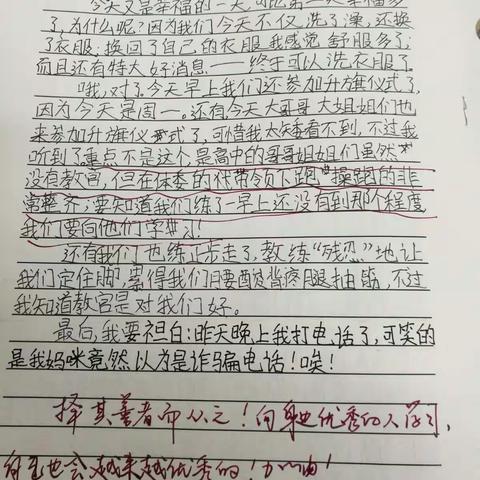 今天又是幸福的一天，可比第一天幸福多
了，为什么呢？因为我们今天不仅洗了澡，还换
了衣服；换回了自己的衣服我感觉舒服多了；
而且还有特大好消息——终于可以洗衣服了。
哦，对了，今天早上我们还参加升旗仪式了，
因为今天是周一。还有，今天大哥哥大姐姐们也
来参加升旗仪式了，可惜我太矮看不到，不过我
听到了，重点不是这个，是高中的哥哥姐姐们虽然
没有教官，但在体委的带领下跑操跑的非
常整齐；要知道我们练了一早上还没有到那个程度
我们要向他们学习！
还有我们也练正步走了，教练“残忍”地让
我们定住脚，累得我们腰酸背疼腿抽筋，不过
我知道教官是对我们好。
最后，我要袒白：昨天晚上我打电话了，可笑的
是我妈咪竟然以为是诈骗电话！唉！
择其善者而从之！向身边优秀的人学习，
自己也会越来越优秀的！加油！